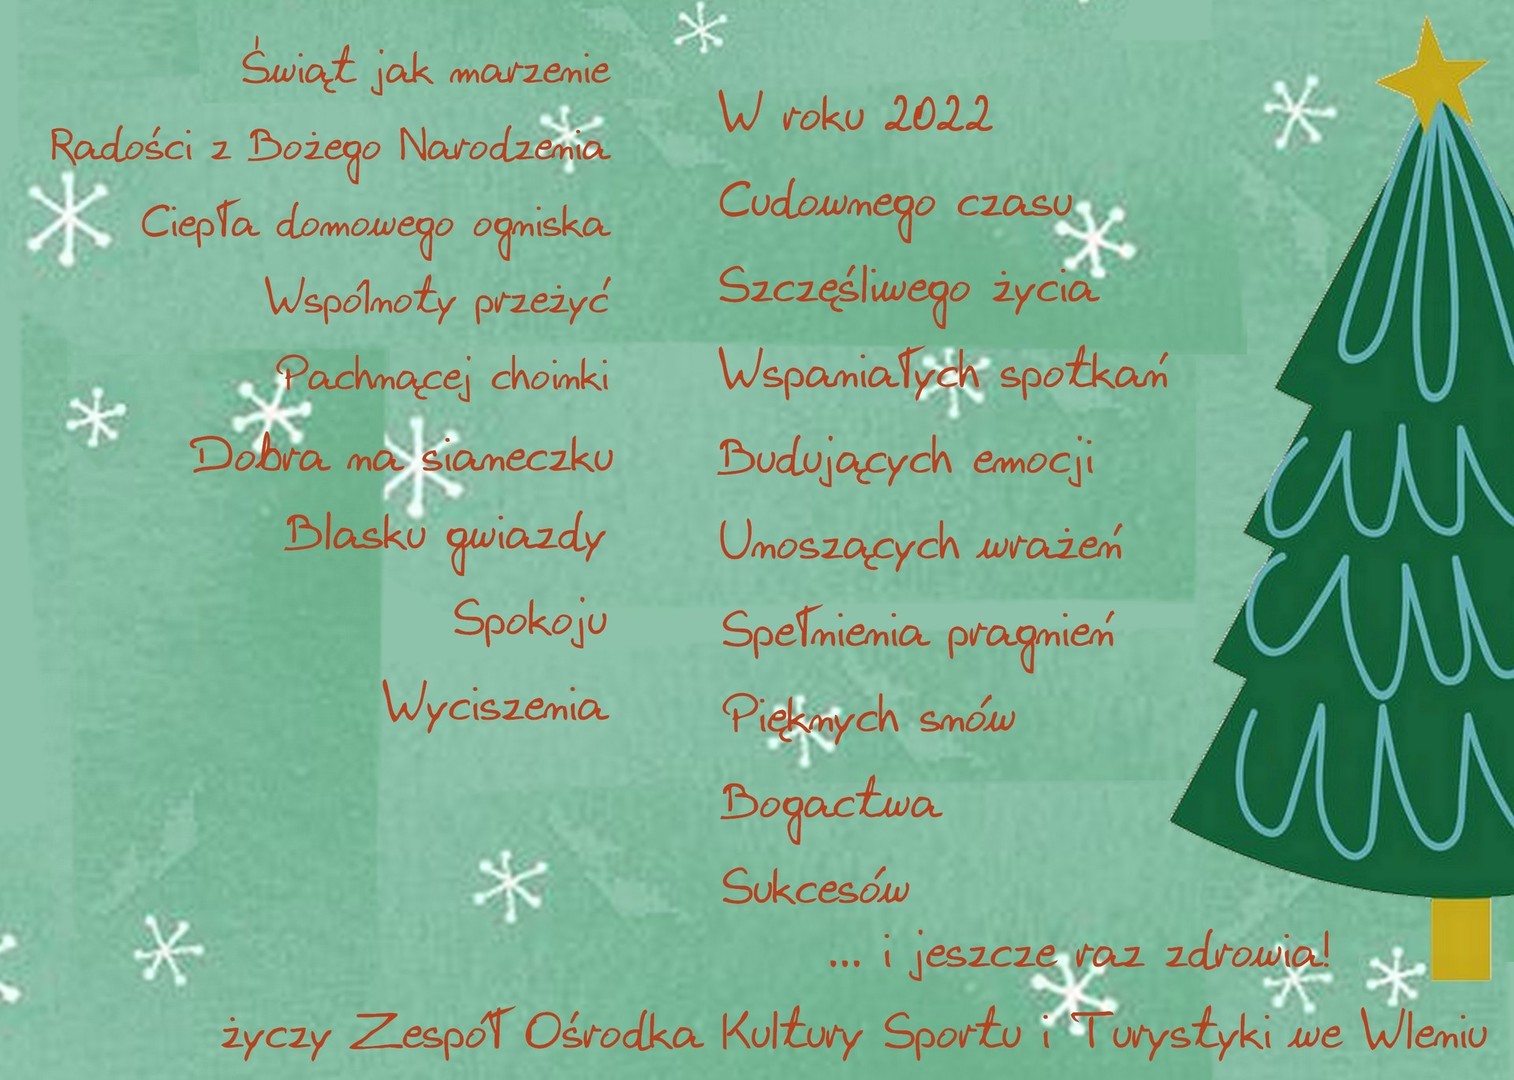 Świąt jak marzenie
Radości z Bożego Narodzenia
Ciepła domowego ogniska
Wspólnoty przeżyć
Pachnącej choinki
Dobra na sianeczku
Blasku gwiazdy
Spokoju
Wyciszenia
W roku 2022
Cudownego czasu
Szczęśliwego życia
Wspaniałych spotkań
Budujących emocji
Unoszących wrażeń
Spełnienia pragnień
Pięknych snów
Bogactwa
Sukcesów
... i jeszcze raz zdrowia!
życzy Zespół Ośrodka Kultury Sportu i Turystyki we Wleniu